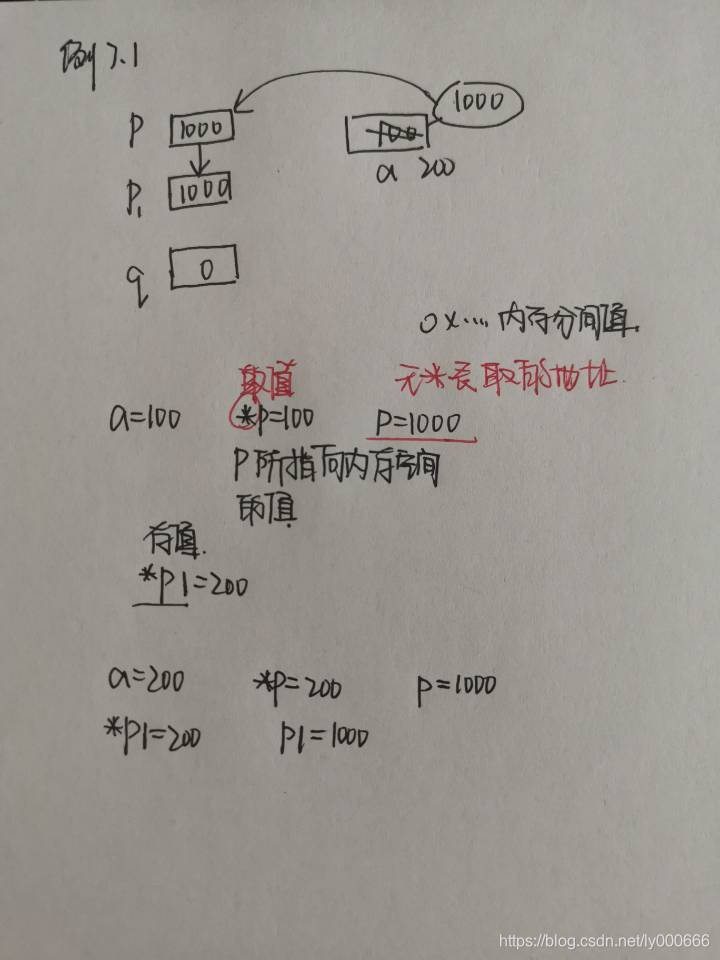 例7.1
1000
P 1000
100
a 200
P1 1000
q 0
0x.... 内存空间值.
取值 无*表取的地址.
a=100 *p=100 P=1000
P所指向内存空间
取值
存值.
*p1=200
a=200 *p=200 p=1000
*p1=200 p1=1000
https://blog.csdn.net/ly000666